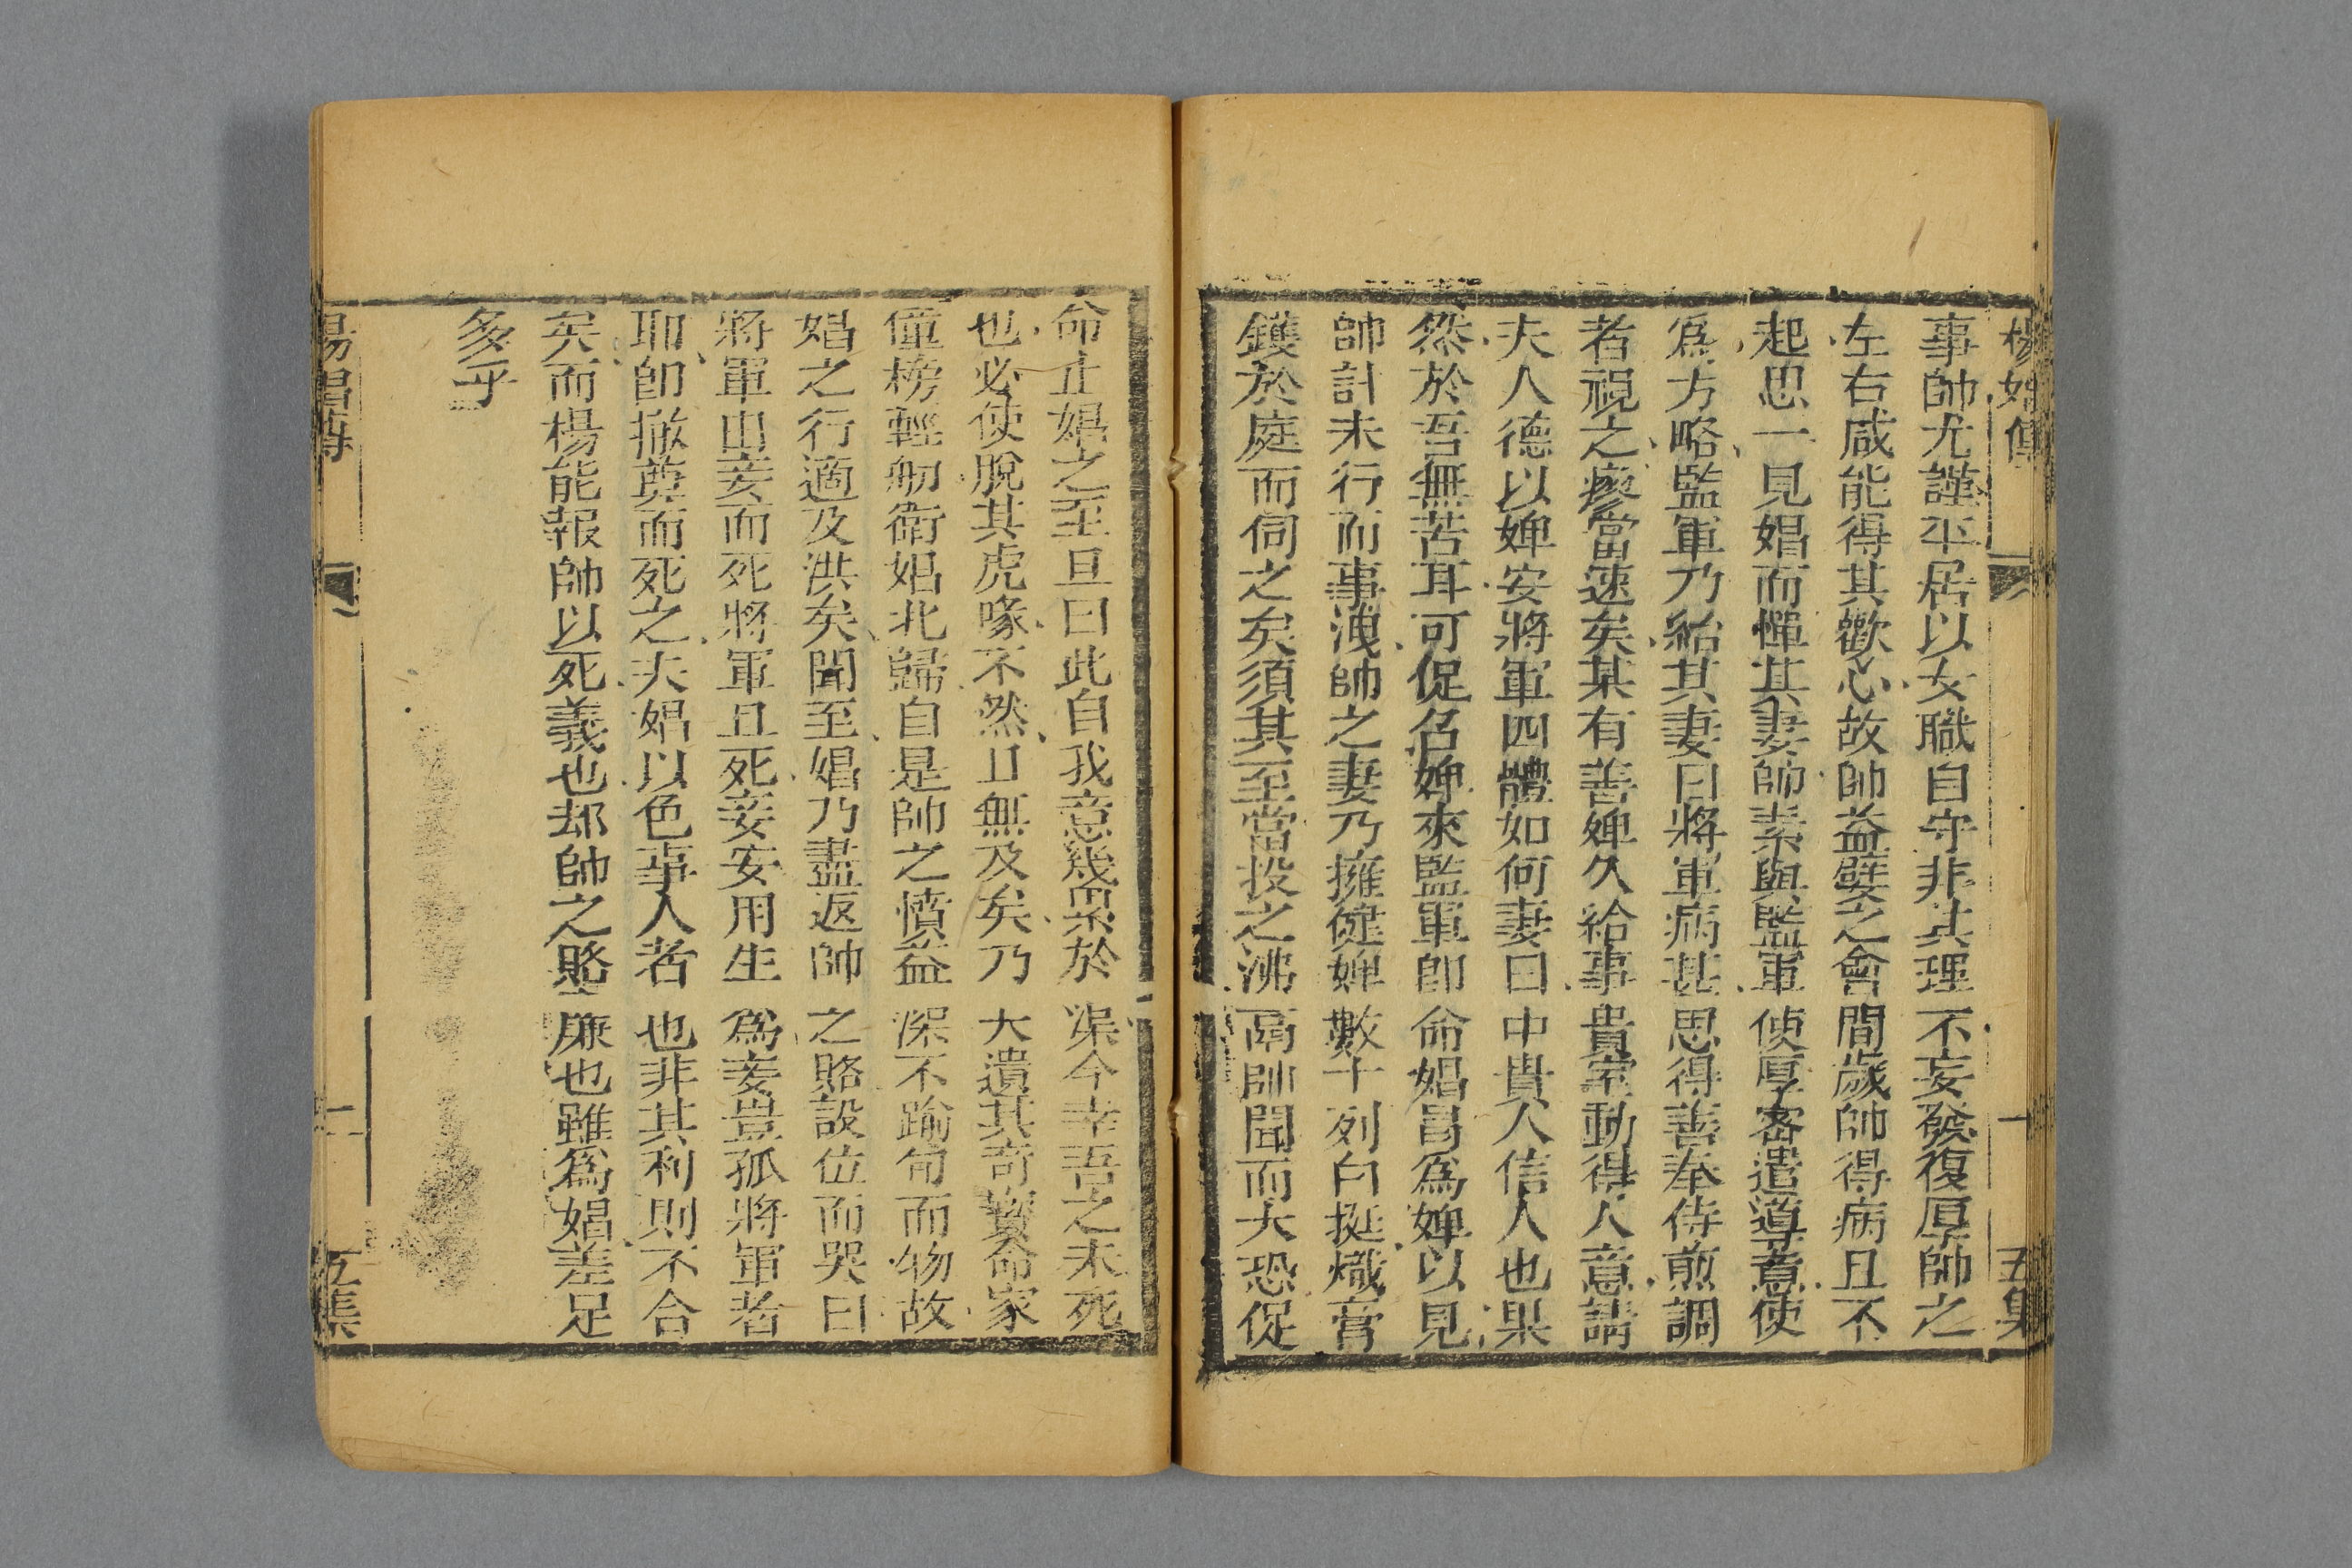 楊娼傳 一 五集
事帥尤謹平居以女職自守非其理不妄發復厚帥之
左右咸能得其歡心故帥益嬖之會間歲帥得病且不
起思一見娼而憚其妻帥素與監軍使厚密遣導意使
爲方略監軍乃紿其妻曰將軍病甚思得善奉侍煎調
者視之瘳當速矣某有善婢久給事貴室動得人意請
夫人德以婢安將軍四體如何妻曰中貴人信人也果
然於吾無苦耳可促召婢來監軍即命娼冒爲婢以見
帥計未行而事洩帥之妻乃擁健婢數十列白挺熾膏
鑊於庭而伺之矣須其至當投之沸鬲帥聞而大恐促
命止娼之至且曰此自我意幾累於渠今幸吾之未死
也必使脫其虎喙不然且無及矣乃大遺其奇寶命家
僮榜輕舠衛娼北歸自是帥之憤益深不踰旬而物故
娼之行適及洪矣聞至娼乃盡返帥之賂設位而哭曰
將軍由妾而死將軍且死妾安用生爲妾豈孤將軍者
耶即撤奠而死之夫娼以色事人者也非其利則不合
矣而楊能報帥以死義也却帥之賂廉也雖爲娼差足
多乎
楊娼傳 二 五集